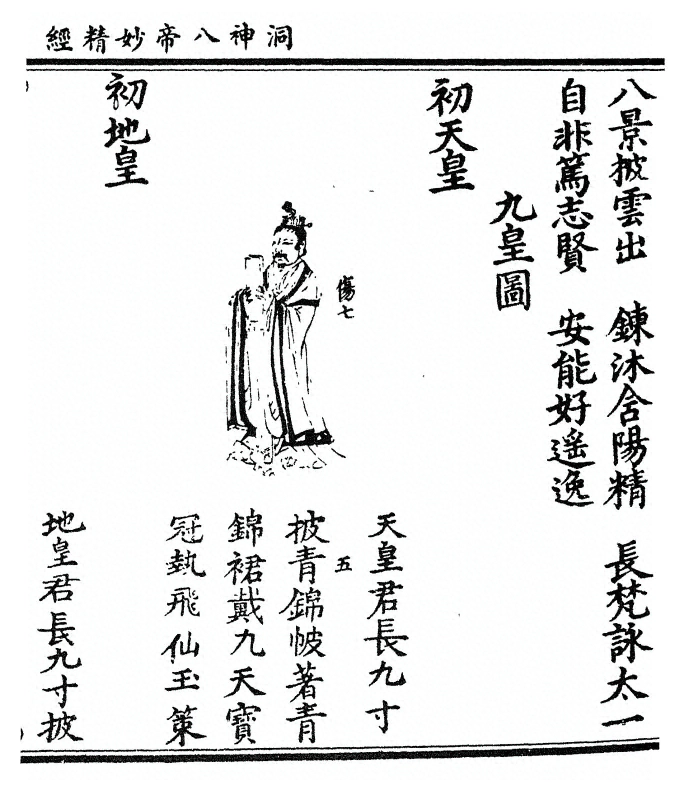 洞神八帝妙精經
八景披雲出　鍊沐含陽精　長梵詠太一
自非篤志賢　安能好遥逸
九皇圖
初天皇
傷七
天皇君長九寸
五
披青錦帔著青
錦裙戴九天寶
冠執飛仙玉策
初地皇
地皇君長九寸披